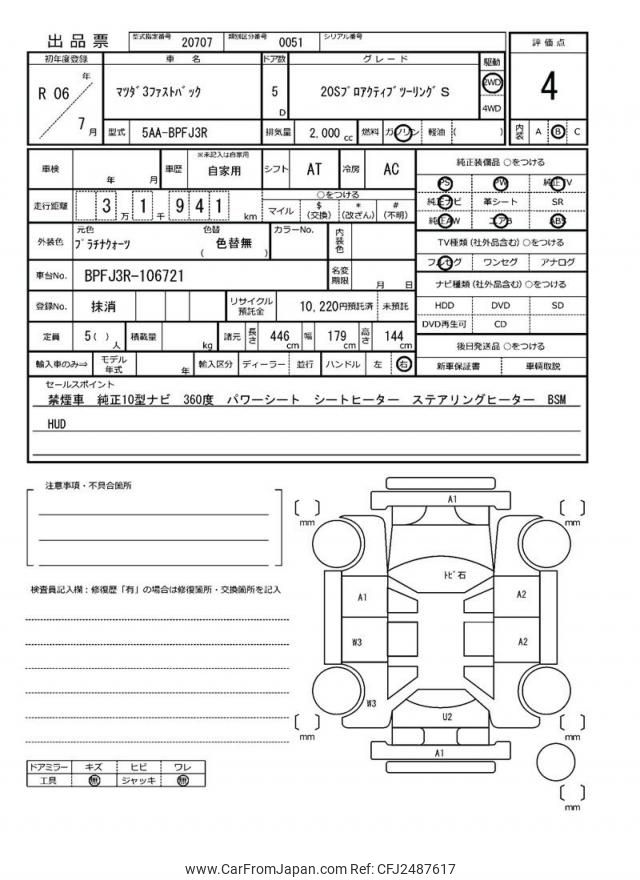 出品票 型式指定番号 20707 類別区分番号 0051 シリアル番号
初年度登録 車名 ドア数 グレード 駆動 評価点
R 06 年 7 月 マツダ3ファストバック 5 D 20SプロアクティブツーリングS 2WD 4WD 4
型式 5AA-BPFJ3R 排気量 2,000 cc 燃料 ガソリン 軽油 ( ) 内装 A B C
車検 年 月 車歴 ※未記入は自家用 自家用 シフト AT 冷房 AC 純正装備品 ○をつける
PS PW 純正TV
走行距離 3 万 1 千 9 4 1 km ○をつける マイル $ (交換) * (改ざん) # (不明)
純正ナビ 革シート SR
純正AW エアB ABS
外装色 元色 プラチナクォーツ 色替 ( 色替無 ) カラーNo. 内装色
TV種類 (社外品含む) ○をつける
フルセグ ワンセグ アナログ
車台No. BPFJ3R-106721 名変期限 月 日
ナビ種類 (社外品含む) ○をつける
登録No. 抹消 リサイクル預託金 10,220円預託済 未預託
HDD DVD SD
DVD再生可 CD
定員 5 ( ) 人 積載量 kg 諸元 長さ 446 cm 幅 179 cm 高さ 144 cm
後日発送品 ○をつける
輸入車のみ⇒ モデル年式 年 輸入区分 ディーラー 並行 ハンドル 左 右
新車保証書 車輌取説
セールスポイント
禁煙車 純正10型ナビ 360度 パワーシート シートヒーター ステアリングヒーター BSM
HUD
注意事項・不具合箇所
検査員記入欄：修復歴「有」の場合は修復箇所・交換箇所を記入
ドアミラー キズ ヒビ ワレ
工具 無 ジャッキ 無
A1
mm
mm
トビ石
A1
A2
W3
A2
W3
U2
mm
mm
A1
mm
www.CarFromJapan.com Ref: CFJ2487617